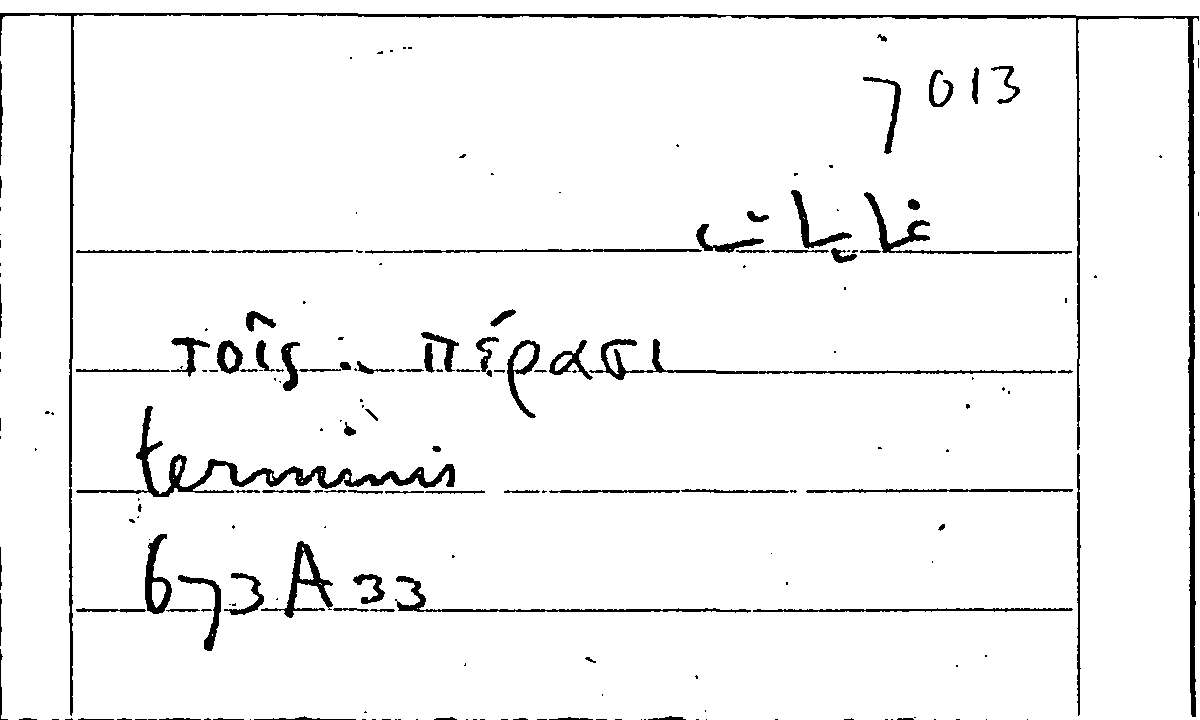 7013
غايات
τοῖς .. πέρασι
terminis
673A33